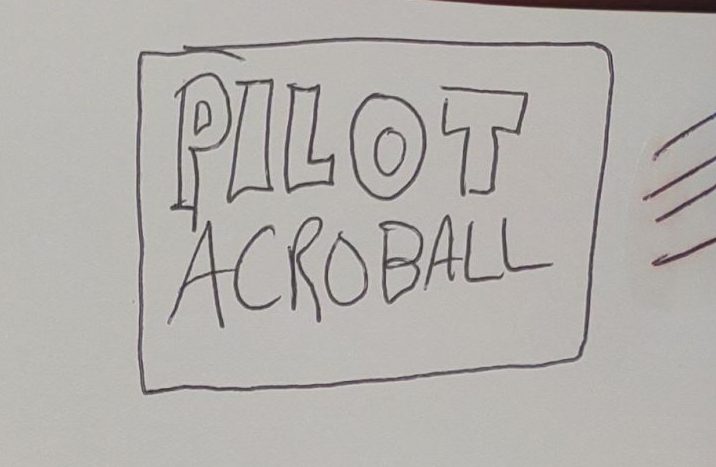 PILOT
ACROBALL